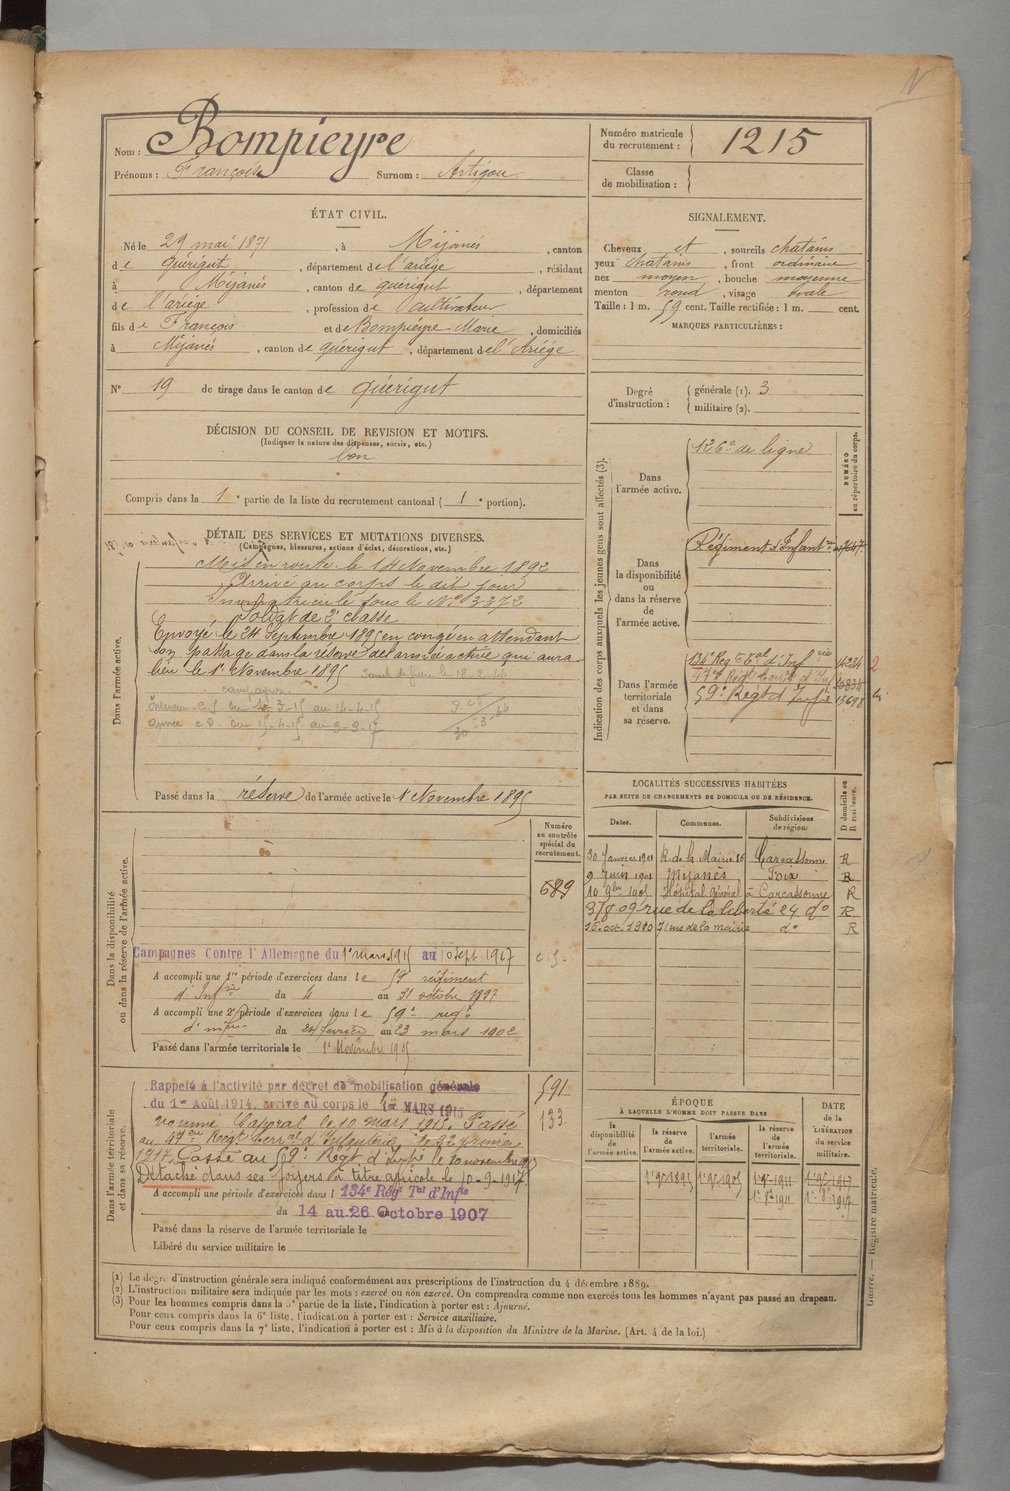 N
Nom : Bompieyre
Prénoms : François Surnom : Artigou
Numéro matricule du recrutement : 1215
Classe de mobilisation :
ÉTAT CIVIL.
Né le 29 mai 1871, à Mijanès, canton
de Quérigut, département de l'ariège, résidant
à Mijanès, canton de quérigut, département
de l'ariège, profession de Cultivateur
fils de François et de Bompieyre Marie, domiciliés
à Mijanès, canton de quérigut, département de l'Ariège
N° 19 de tirage dans le canton de Quérigut
SIGNALEMENT.
Cheveux et, sourcils chatains
yeux chatains, front ordinaire
nez moyen, bouche moyenne
menton rond, visage ovale
Taille : 1 m. 59 cent. Taille rectifiée : 1 m. cent.
MARQUES PARTICULIÈRES :
Degré d'instruction :
générale (1). 3
militaire (2).
DÉCISION DU CONSEIL DE REVISION ET MOTIFS.
(Indiquer la nature des dispenses, sursis, etc.)
bon
Compris dans la 1e partie de la liste du recrutement cantonal ( 1e portion).
DÉTAIL DES SERVICES ET MUTATIONS DIVERSES.
(Campagnes, blessures, actions d'éclat, décorations, etc.)
Dans l'armée active.
Mis en route le 14 Novembre 1892
Arrivé au corps le dit jour
Immatriculé sous le N° 3372
Soldat de 2e classe
Envoyé le 24 Septembre 1895 en congé en attendant
son passage dans la réserve de l'armée active qui aura
lieu le 1er Novembre 1895
campagnes
Intérieur C.S. du 1-3-15 au 14-4-15
Passé dans la réserve de l'armée active le 1 Novembre 1895
Indication des corps auxquels les jeunes gens sont affectés (3).
NUMÉRO au répertoire du corps.
Dans l'armée active.
126e de ligne
Dans la disponibilité ou dans la réserve de l'armée active.
Régiment d'Infantrie
Dans l'armée territoriale et dans sa réserve.
134e Regt Tal d'Infrie 14234 2
47e Regt Terr d'Inf
59e Regt d'Infie 13698
LOCALITÉS SUCCESSIVES HABITÉES
PAR SUITE DE CHANGEMENTS DE DOMICILE OU DE RÉSIDENCE.
Dates. Communes. Subdivisions de région. D domicile ou R résidence.
30 Janvier 1901 R. de la Mairie 36 Carcassonne R
9 Juin 1901 Mijanès Foix R
10 9bre 1905 Hôpital Général à Carcassonne R
rue de la liberté 24 do R
15 oct. 1910 71 rue de la mairie do R
Dans la disponibilité ou dans la réserve de l'armée active.
Numéro au contrôle spécial du recrutement.
689
Campagnes Contre l'Allemagne du 1er mars 1915 au 10 sept. 1917
A accompli une 1re période d'exercices dans le 59e régiment
d'Infrie du 4 au 31 octobre 1897
A accompli une 2e période d'exercices dans le 59e regt
d'infrie du 24 février au 23 mars 1902
Passé dans l'armée territoriale le 1er Novembre 1905
Dans l'armée territoriale et dans sa réserve.
591
133
Rappelé à l'activité par décret de mobilisation générale
du 1er Août 1914, arrivé au corps le 1er MARS 1915
nommé Caporal le 10 mars 1915. Passé
au 47e Régt Terral d'Infanterie le 22 janvier
1917. Passé au 59e Régt d'Infie le 10 novembre
Détaché dans ses foyers à titre agricole le 10-9-1917.
A accompli une période d'exercices dans l 134e Régt Tal d'Infie
du 14 au 26 Octobre 1907
Passé dans la réserve de l'armée territoriale le
Libéré du service militaire le
ÉPOQUE
À LAQUELLE L'HOMME DOIT PASSER DANS
la disponibilité de l'armée active. la réserve de l'armée active. l'armée territoriale. la réserve de l'armée territoriale.
DATE de la LIBÉRATION du service militaire.
1er 9bre 1895 1er 9bre 1905 1er 9bre 1911 1er 9bre 1917
(1) Le degré d'instruction générale sera indiqué conformément aux prescriptions de l'instruction du 4 décembre 1889.
(2) L'instruction militaire sera indiquée par les mots : exercé ou non exercé. On comprendra comme non exercés tous les hommes n'ayant pas passé au drapeau.
(3) Pour les hommes compris dans la 5e partie de la liste, l'indication à porter est : Ajourné.
Pour ceux compris dans la 6e liste, l'indication à porter est : Service auxiliaire.
Pour ceux compris dans la 7e liste, l'indication à porter est : Mis à la disposition du Ministre de la Marine. (Art. 4 de la loi.)
Guerre. — Registre matricule.